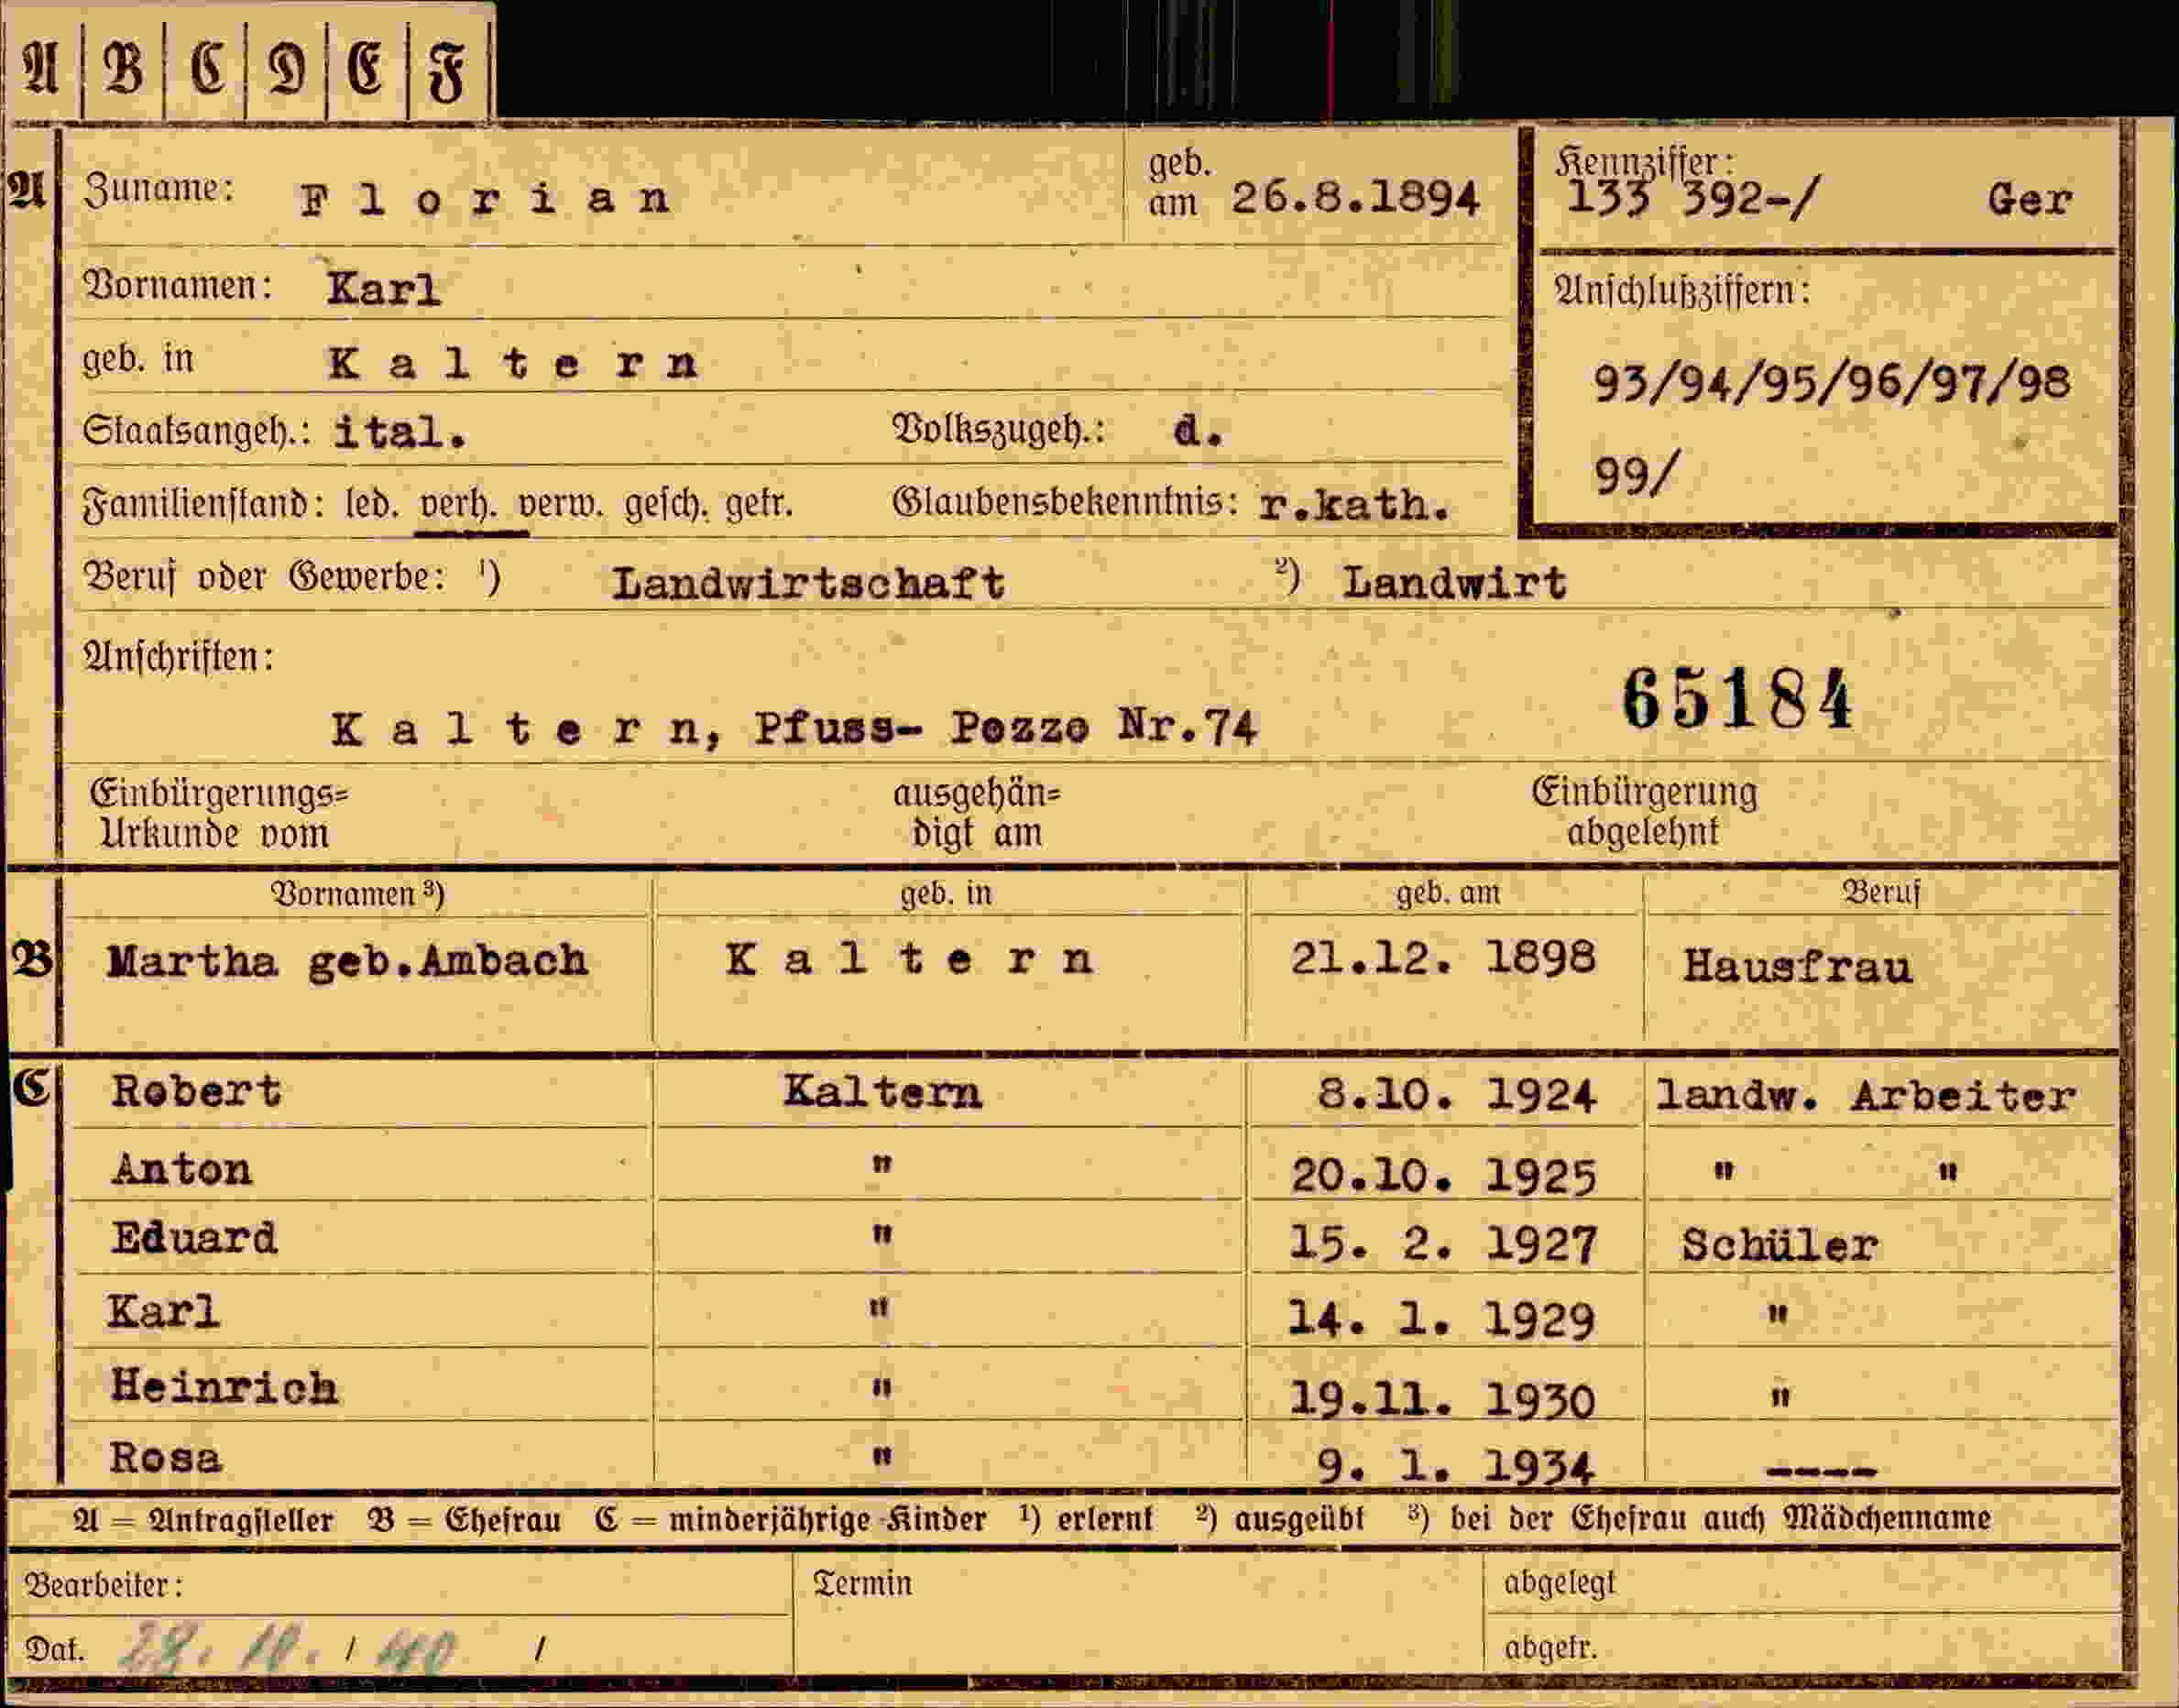 A B C D E F
A Zuname: Florian geb. am 26.8.1894 Kennziffer: 133 392-/ Ger
Vornamen: Karl Anschlußziffern:
geb. in Kaltern 93/94/95/96/97/98
Staatsangeh.: ital. Volkszugeh.: d. 99/
Familienstand: led. verh. verw. gesch. getr. Glaubensbekenntnis: r.kath.
Beruf oder Gewerbe: ¹) Landwirtschaft ²) Landwirt
Anschriften: 65184
Kaltern, Pfuss- Pozzo Nr.74
Einbürgerungs= ausgehän= Einbürgerung
Urkunde vom digt am abgelehnt
Vornamen ³) geb. in geb. am Beruf
B Martha geb.Ambach Kaltern 21.12. 1898 Hausfrau
C Robert Kaltern 8.10. 1924 landw. Arbeiter
Anton " 20.10. 1925 " "
Eduard " 15. 2. 1927 Schüler
Karl " 14. 1. 1929 "
Heinrich " 19.11. 1930 "
Rosa " 9. 1. 1934 ----
A = Antragsteller B = Ehefrau C = minderjährige Kinder ¹) erlernt ²) ausgeübt ³) bei der Ehefrau auch Mädchenname
Bearbeiter: Termin abgelegt
Dat. 10. / 40 / abgetr.